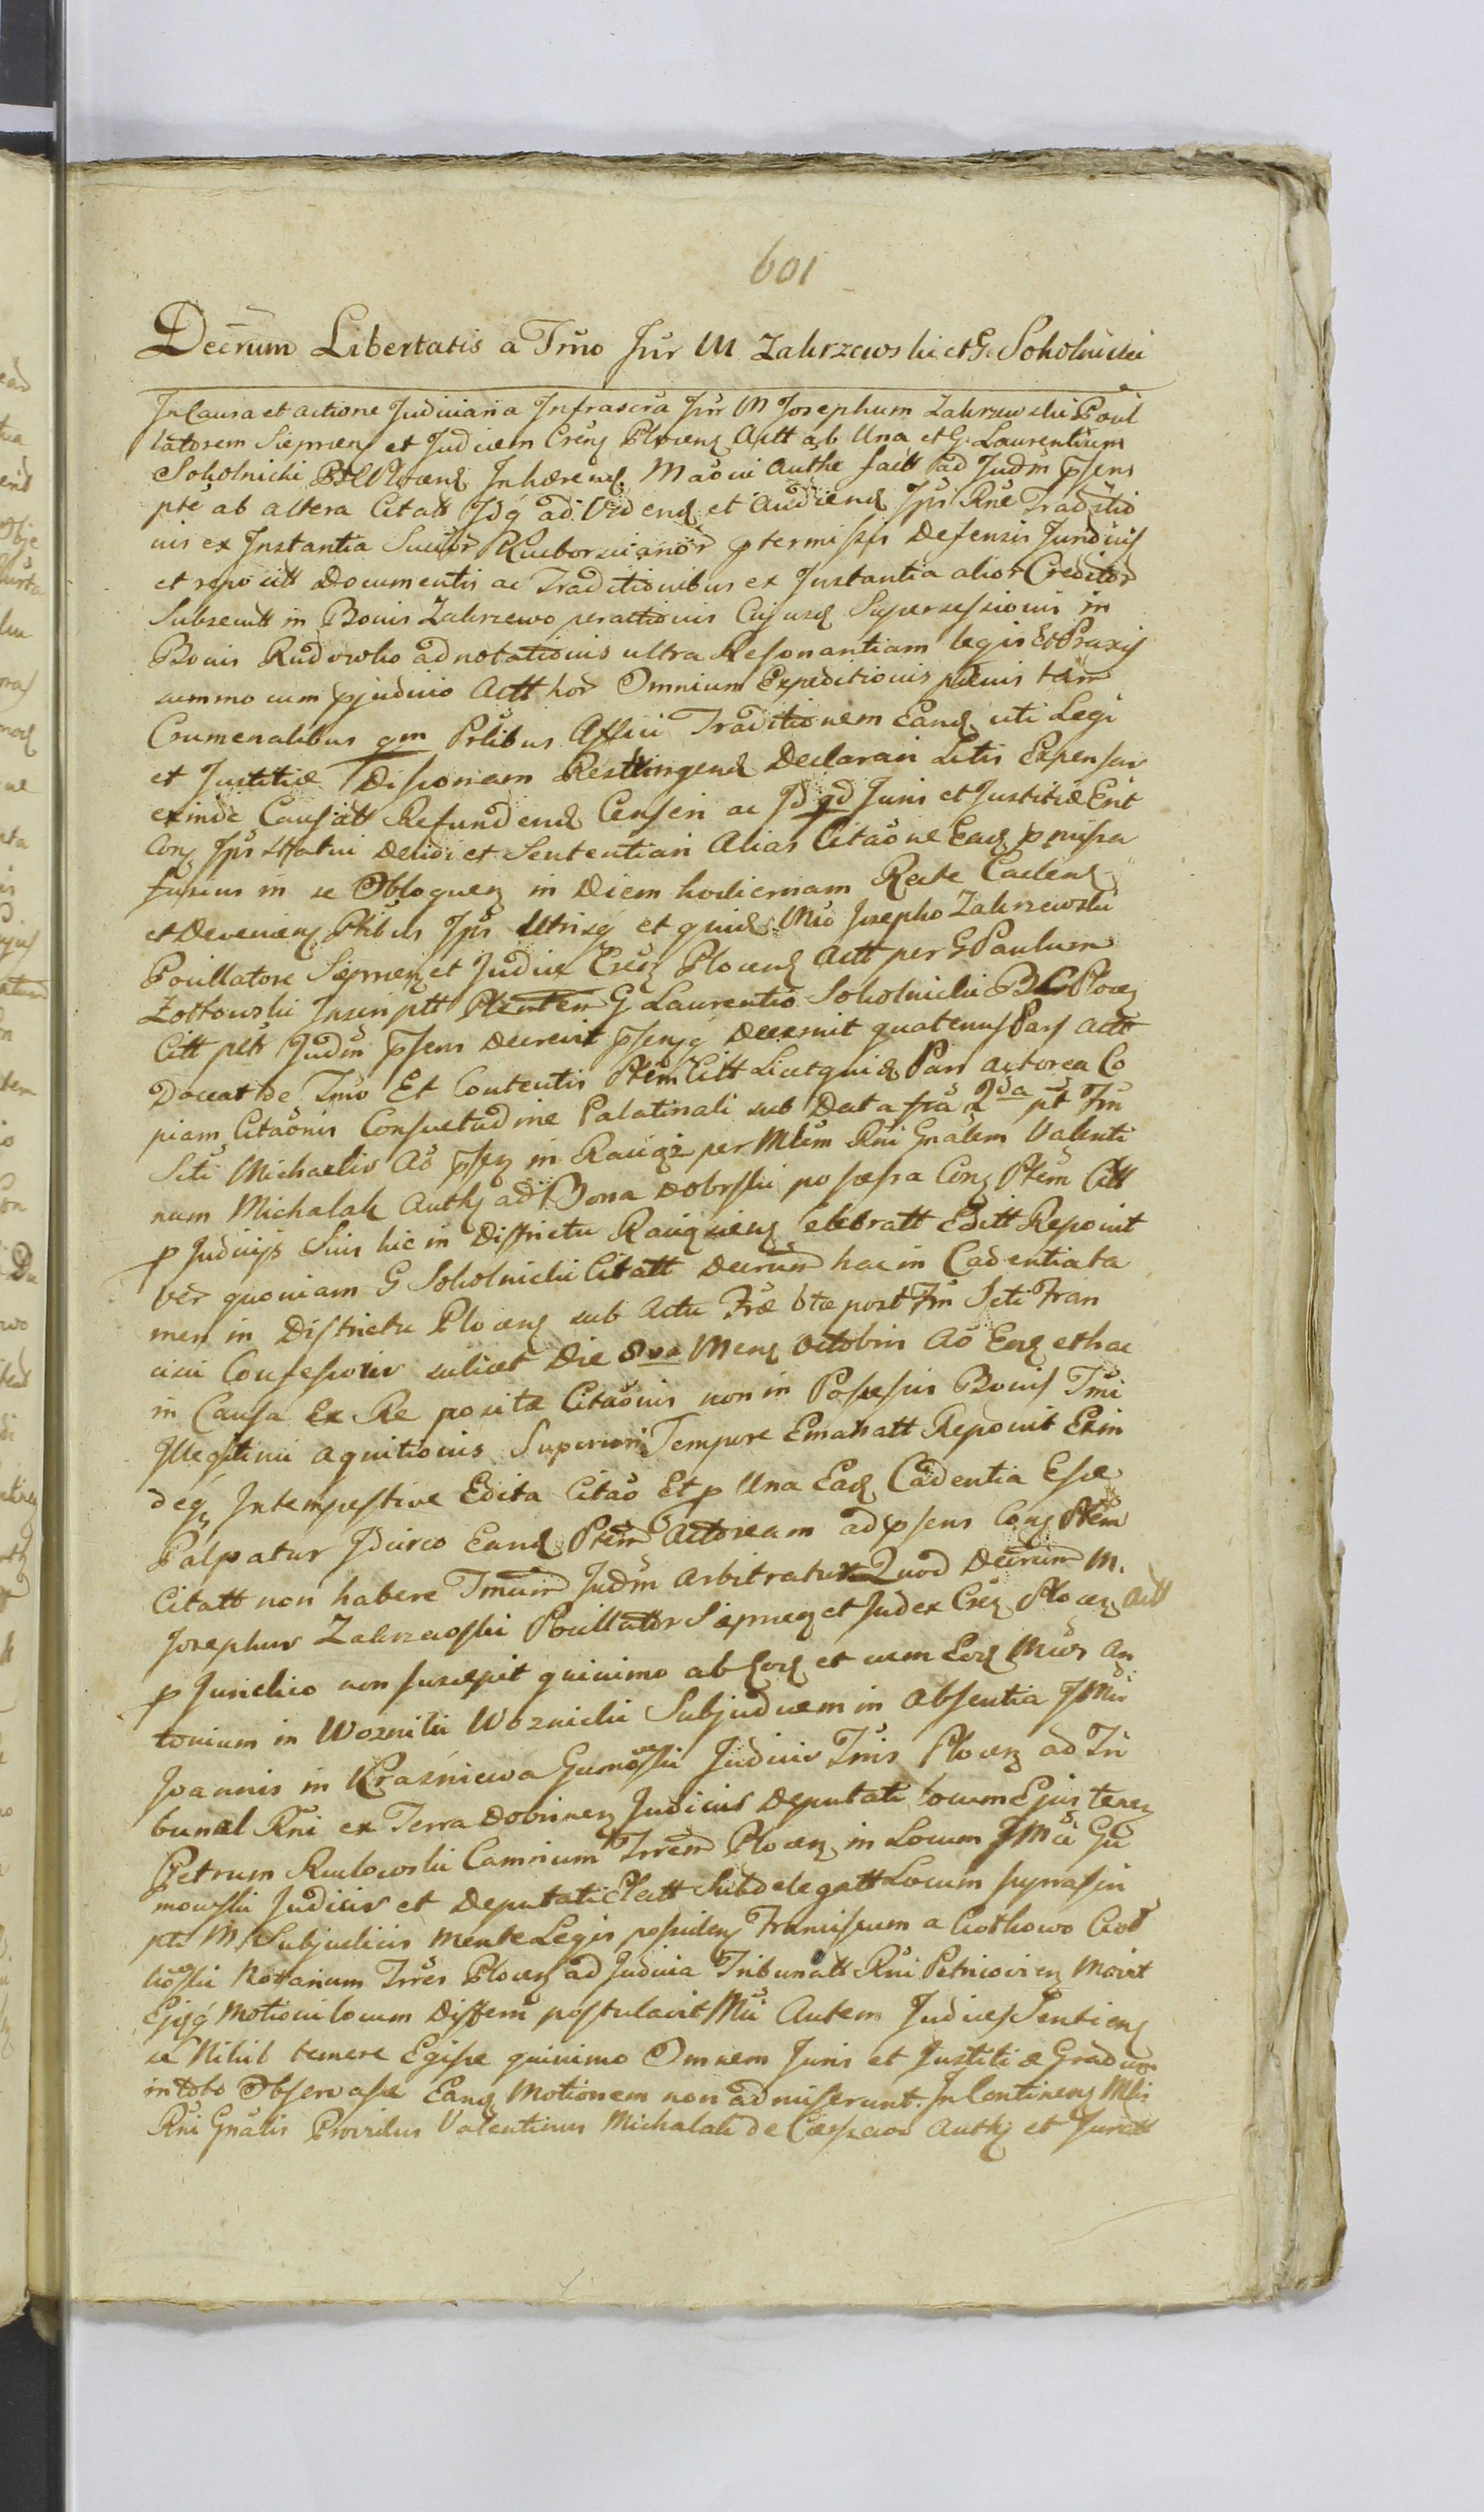 601
Decrum Libertatis a Trno Jur M Zakrzewski et G. Sokolnicki
In Causa et actione Judiciaria Infrascra Jnr M Josephum Zakrzewski Pocil
latorem Siepncen et Judicem Cren Plocen Actt ab Una et G. Laurentium
Sokolnicki Plocen Inhæren Maoni Authe factt ad Judm psens
pte ab altera Citatt Idq ad Viden et Audien Ipr Rne Traditio
nis ex Instantia Succor ptermissis Defensis Juridicis
et reposits Documentis ac Traditionibus ex Instantia alior Creditor
Subsecutt in Bonis Zakrzewo peractionis Cujusd Supersessionis in
Bonis Rudowko adnotationis ultra Resonantiam legis Et Praxis
summo cum pjudicio Actt hor Omnium Expeditionis pænis tam
Crumenalibus qm Prlibus Affici Traditionem Eand uti Legi
et Justitiæ Disonam Restringend Declarari Litis Expensas
exinde Causatt Refundend Censeri ac Id qd Juris et Justitiæ Erit
Con Ipr Statui Decidi et Sententiari Alias Citaone Ead pmissa
fusius in se Obloquen in Diem hodiernam Recte Caden
et Devenien Ptibus Ipr Utrisq et quid Mco Josepho Zakrzewski
Pocillatore Siepncen et Judice Cren Plocen Actt per G Paulum
Zołtowski Inscriptt Plenten G Laurentio Sokolnicki B C Plocen
Citt petr Judm Psens Decrevit psensq Decernit quatenus Pars Actt
Doceat de Tmo Et Contentis Ptem Citt Licet quid Pars actorea Co
piam Citaonis Consvetudine Palatinali sub Data fra 2da pt Fm
Scti Michaelis Ao psen in Raciąz per Mlem Rni Gnalem Valenti
num Michalak Auth ad Bona Dobrski posessa Con Ptem Citt
p Judicijs Suis hic in Districtu Raciązien Celebratt Editt Reponit
Ver quoniam G Sokolnicki Citatt Decrum hac in Cadentia ta
men in Districtu Plocen sub Actu Fræ 6tæ post Fm Scti Fran
cisci Confessoris scilicet Die 8va Mens Octobris Ao Eod et hac
in Causa Ex Re positæ Citaonis non in Possessis Bonis Tmi
Illegitimi agnitionis Superiori Tempore Emanatt Reponit Exin
deq Intempestive Edita Citao Et p Una Ead Cadentia Esse
Palpatur Idcirco Eand Ptem Actoream ad psens Con Ptem
Citatt non habere Tmum Judm Arbitratur Quod Decrum M.
Josephus Zakrzewski Pocillator Siepncen et Judex Cren Plocen Actt
p Juridico non suscepit quinimo ab Eod et cum Eod Mcos An
tonium in Woznili Woznicki Subjudicem in Absentia JMci
Joannis in Krasniewa Gumowski Judicis Tris Plocen ad Tri
bunal Rni ex Terra Dobrinen Judicis Deputati locum Ejus tenen
Petrum Rudowski Camrium Trrem Plocen in Locum JMci Gu
mowski Judicis et Deputati Platt Subdelegatt Locum suprascri
pti M. Subjudicis Mente Legis possiden Franciscum a Ciotkowo Ciot
kowski Notarium Trres Plocen ad Judicia Tribunatt Rni Petricovien Movit
Ejusq Motioni locum Differri postulavit Mci Autem Judices Sentien
se Nihil temere Egisse quinimo Omnem Juris et Justitiæ Gradum
in toto Observasse Eand Motionem non admiserunt. In Continen Mlis
Rni Gnalis Providus Valentinus Michalak de Auth et Juratt